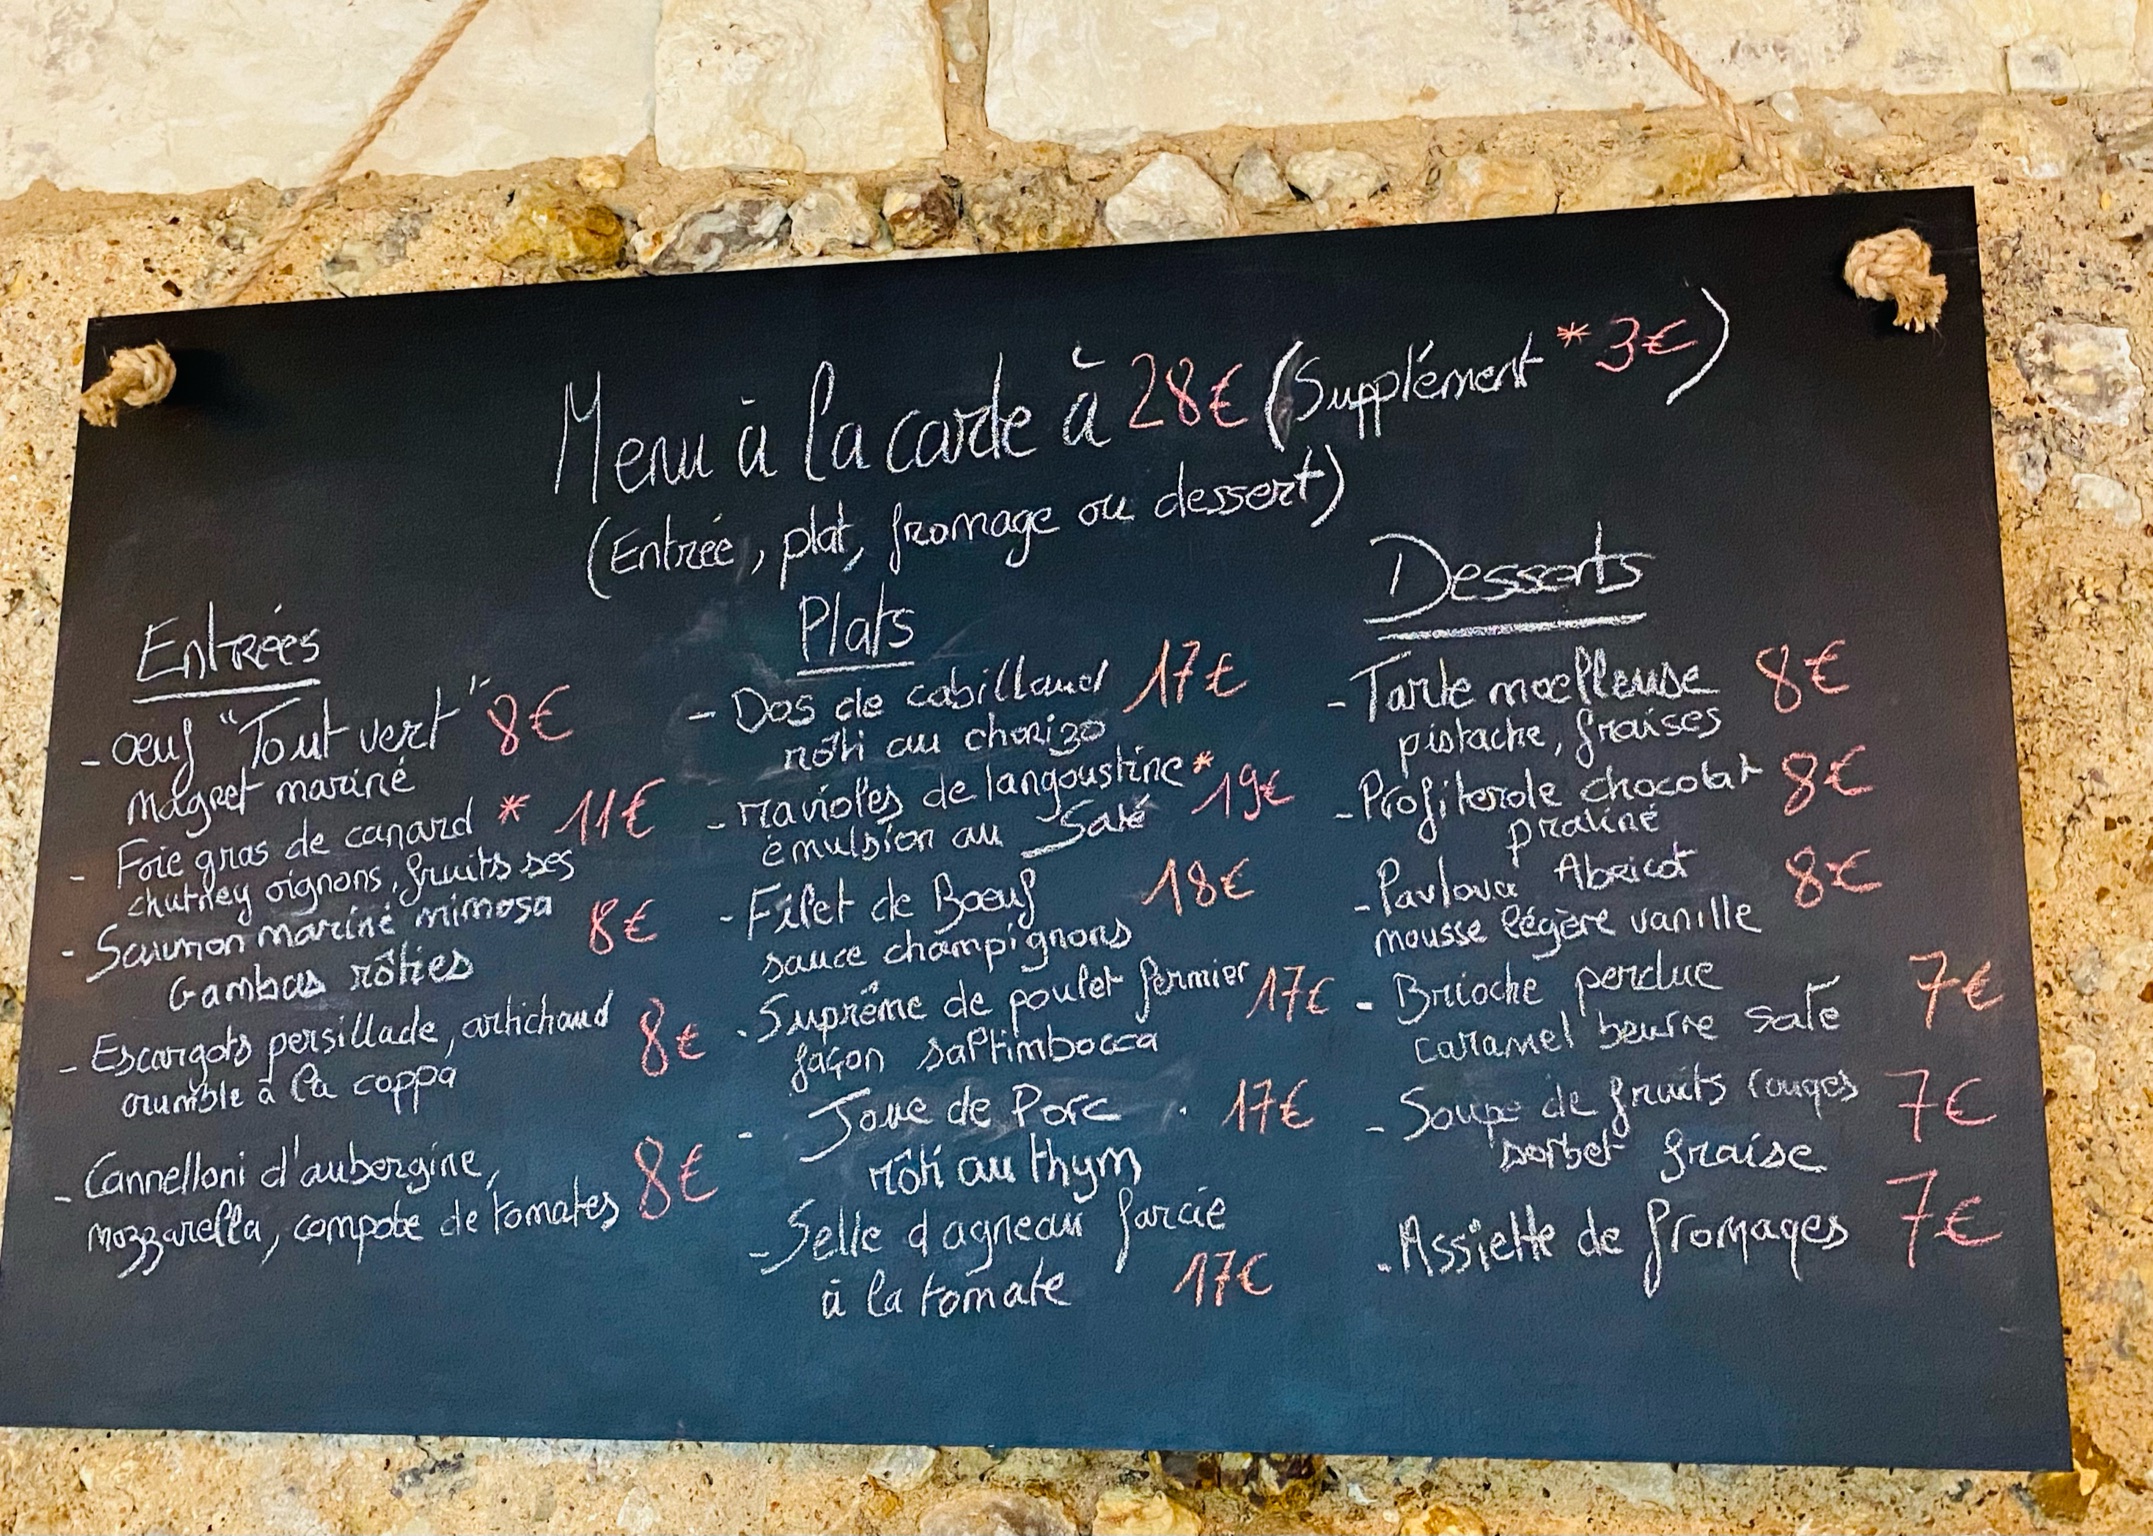 Menu à la carte à 28€ (Supplément *3€)
(Entrée, plat, fromage ou dessert)
Entrées
- œuf "Tout vert" 8€
magret mariné
- Foie gras de canard * 11€
chutney oignons, fruits secs
- Saumon mariné mimosa 8€
Gambas rôties
- Escargots persillade, artichaud 8€
crumble à la coppa
- Cannelloni d'aubergine, 8€
mozzarella, compote de tomates
Plats
- Dos de cabillaud 17€
rôti au chorizo
- ravioles de langoustine* 19€
émulsion au Saté
- Filet de Bœuf 18€
sauce champignons
- Suprême de poulet fermier 17€
façon saltimbocca
- Joue de Porc 17€
rôti au thym
- Selle d'agneau farcie
à la tomate 17€
Desserts
- Tarte moelleuse 8€
pistache, fraises
- Profiterole chocolat 8€
praliné
- Pavlova Abricot 8€
mousse légère vanille
- Brioche perdue 7€
caramel beurre salé
- Soupe de fruits rouges 7€
sorbet fraise
- Assiette de fromages 7€